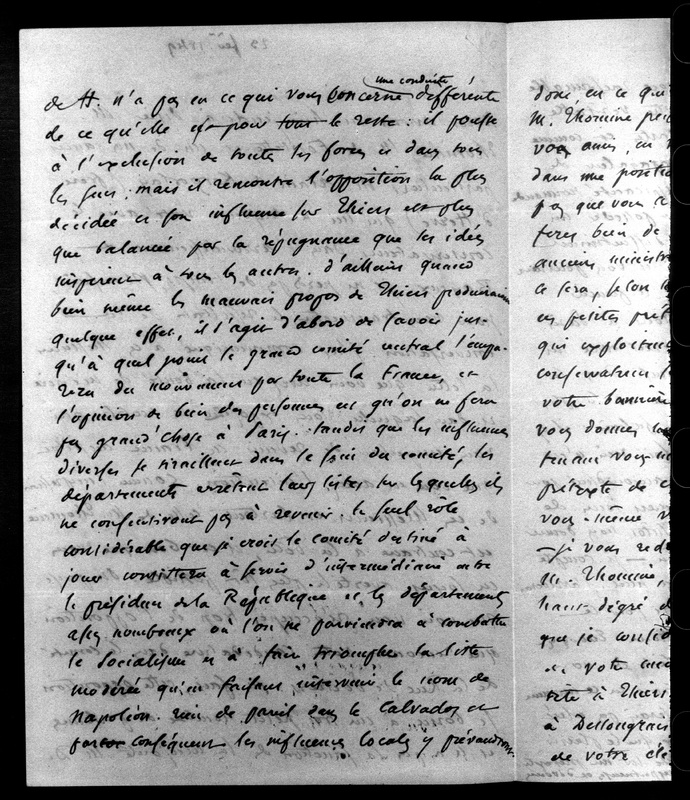 une conduite
de H. n'a pas en ce qui vous concerne différente
de ce qu'elle est pour tout le reste : il pousse
à l'exclusion de toutes les forces et dans tous
les sens ; mais il rencontre l'opposition la plus
décidée et son influence sur Thiers est plus
que balancée par la répugnance que ses idées
inspirent à tous les autres. d'ailleurs quand
bien même les mauvais propos de Thiers produiraient
quelque effet, il s'agit d'abord de savoir jus-
qu'à quel point le grand comité central s'empa-
rera du mouvement par toute la France, et
l'opinion de bien des personnes est qu'on ne fera
pas grand'chose à Paris. tandis que les influences
diverses se tiraillent dans le sein du comité, les
départements arrêtent leurs listes sur lesquelles ils
ne consentiront pas à revenir. le seul rôle
considérable que je crois le comité destiné à
jouer consistera à servir d'intermédiaire entre
le président de la République et les départements
assez nombreux où l'on ne parviendra à combattre
le Socialisme et à faire triompher la liste
modérée qu'en faisant intervenir le nom de
Napoléon. rien de pareil dans le Calvados et
conséquent les influences locales y prévaudront.
donc en ce qui
M. Thomine
vos amis, en
dans une position
pas que vous
ferez bien de
anciens ministres
ce sera, selon
en petites
qui
conservateurs
votre bannière
vous donner
tenant vous
prétexte de
vous-même
– je vous
M. Thomine,
haut degré
que je
et votre
à Thiers
à Deslongrais
de votre